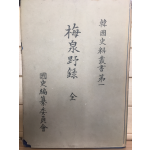 韓國史料叢書第一
梅泉野錄 全
國史編纂委員會